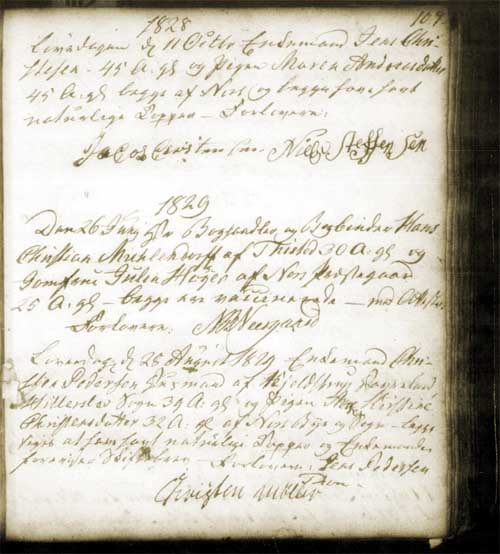 167.
1828
Löverdagen d 11 Octbr Enkemand Jens Chri-
stesen - 45 A: gl og Pigen Maren Andersdatter
45 A: gl begge af Nors og begge have havt
naturlige Kopper - Forlovere:
Jacob Christensen Niels Steffensen
1829
Den 26 Juny Hr Boghandler og Bogbinder Hans
Christian Muhlendorff af Thisted 30 A: gl og
Jomfrue Høyer af Nors Præstegaard
25 A: gl - begge ere vaccinerede - med Attester.
Forlovere: Neergaard
Löverdag d 25 August 1829 Enkemand Chri-
sten Pedersen Huusmand af
Hillerslev Sogn 39 A: gl og Pigen Kirstine
Christensdatter 32 A: gl af Nors Bye og Sogn - begge
at have havt naturlige Kopper og Enkemanden
foreviser Skiftebrev - Forlovere: Jens Pedersen
Christen